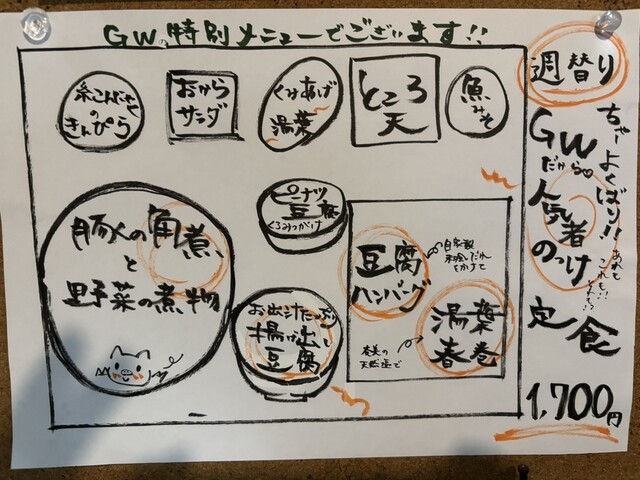 GWの特別メニューでございます!!
糸こんにゃく
の
きんぴら
おから
サラダ
くみあげ
湯葉
ところ
天
魚みそ
豚の角煮
と
野菜の煮物
ピーナツ
豆腐
お出汁たっぷり
揚げ出し
豆腐
豆腐
ハンバーグ
自家製
和風だれ
をかけて
湯葉
春巻
奄美の
天然塩で
週替り
GW
だから
ちゃー
よくばり!!
人気者
のっけ
あれも
これも!!
定食
1,700円